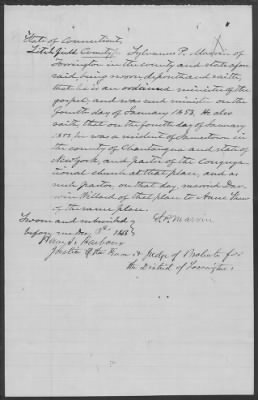 State of Connecticut,
Litchfield County, Sylvanus P. Marvin of
Torrington in the county and state afore
said, being sworn, deposeth and saith,
that he is an ordained minister of the
gospel, and was such minister on the
fourth day of January 1853. He also
saith, that on the fourth day of January
1853 he was a resident of Jamestown in
the county of Chautauqua and state of
New York, and pastor of the Congrega-
tional church at that place, and as
such pastor, on that day, married Dar-
win Willard of that place to Anne
of the same place.
S. P. Marvin
Sworn and subscribed
before me Dec
Henry S. Barbour
Justice of the Peace & Judge of Probate for
the District of Torrington